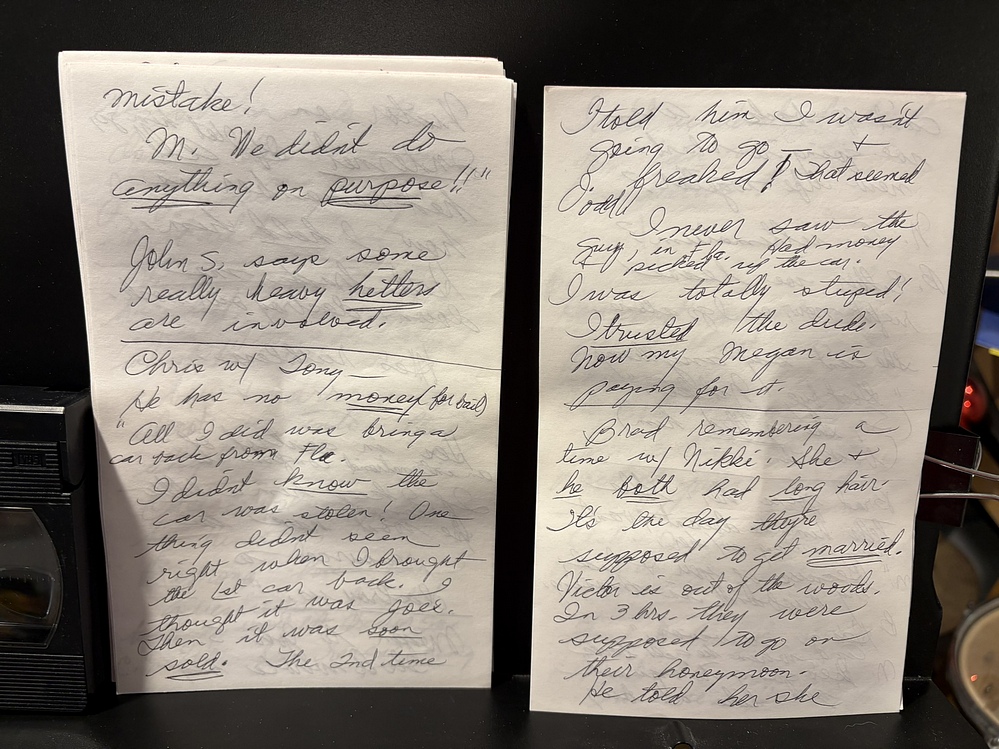 mistake!
M. We didn't do
anything on purpose!!"
John S. says some
really heavy hitters
are involved.
Chris w/ Tony—
He has no money (for bail)
"All I did was bring a
car back from Fla.
I didn't know the
car was stolen! One
thing didn't seem
right when I brought
the 1st car back. I
thought it was Joee.
Then it was soon
sold. The 2nd time
I told him I wasn't
going to go — &
freaked! That seemed
odd!
I never saw the
guy, in Fla. Had money
& picked up the car.
I was totally stupid!
I trusted the dude.
Now my Megan is
paying for it.
Brad remembering a
time w/ Nikki. She &
he both had long hair.
It's the day they're
supposed to get married.
Victor is out of the woods.
In 3 hrs. they were
supposed to go on
their honeymoon.
He told her she